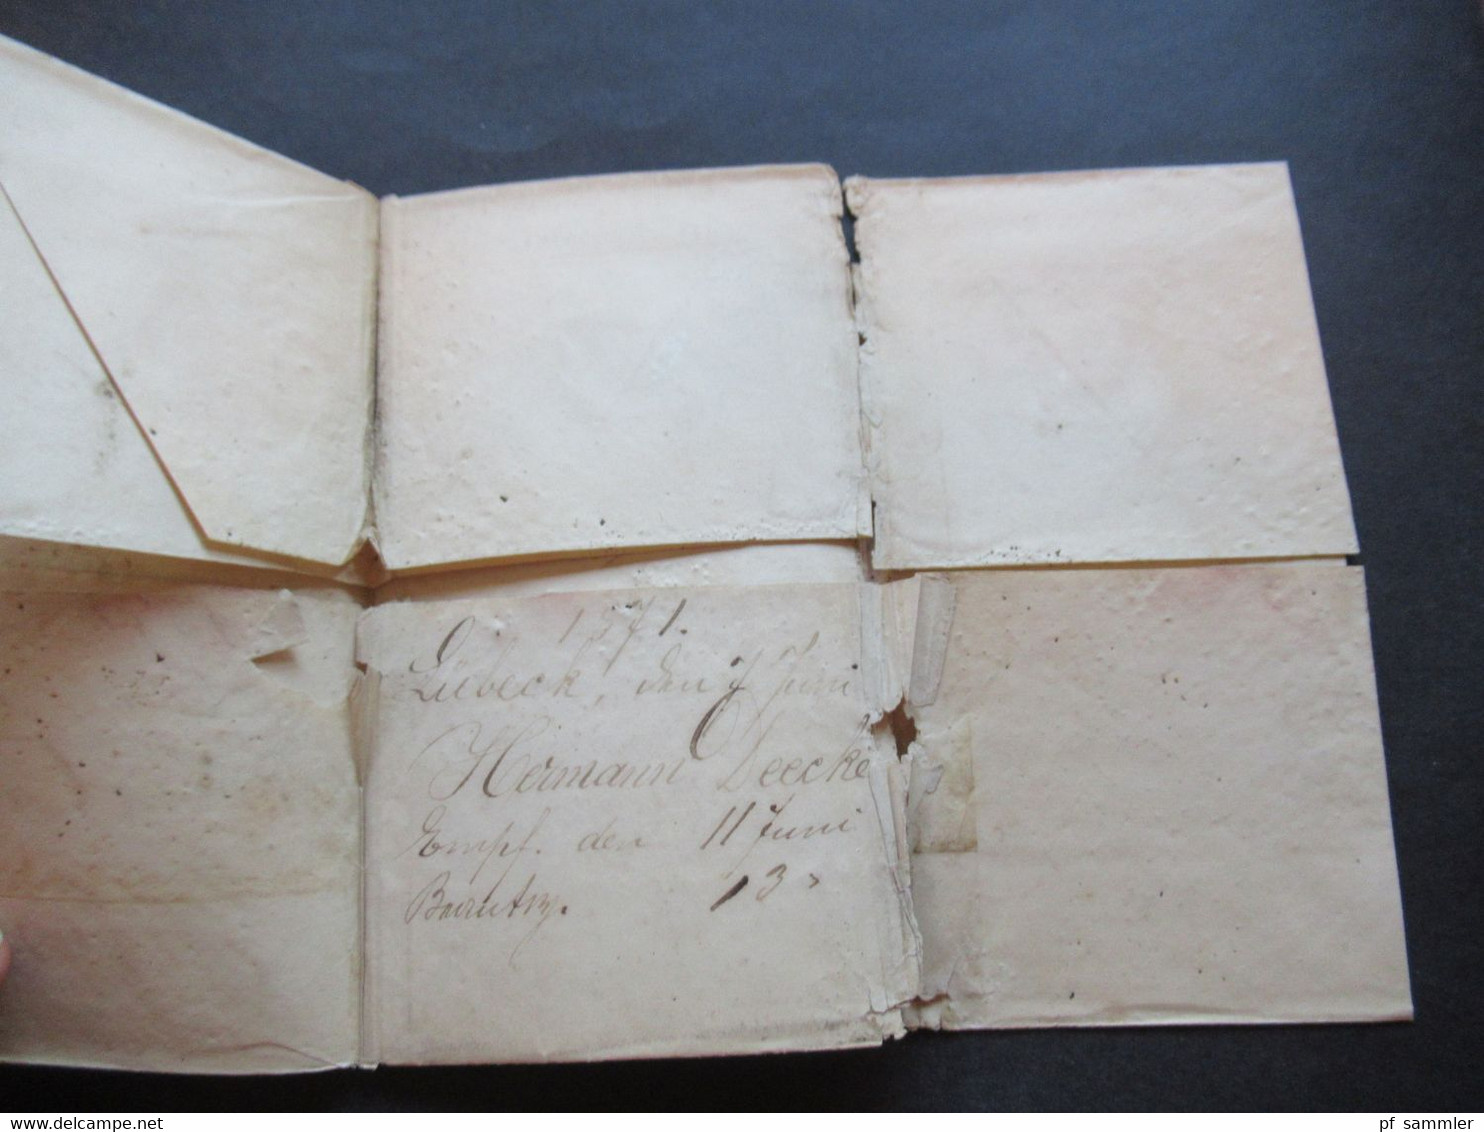 1871.
Lübeck, den 7 Juni
Hermann Deecke
Empf. den 11 Juni
13 "
www.delcampe.net
pf sammler